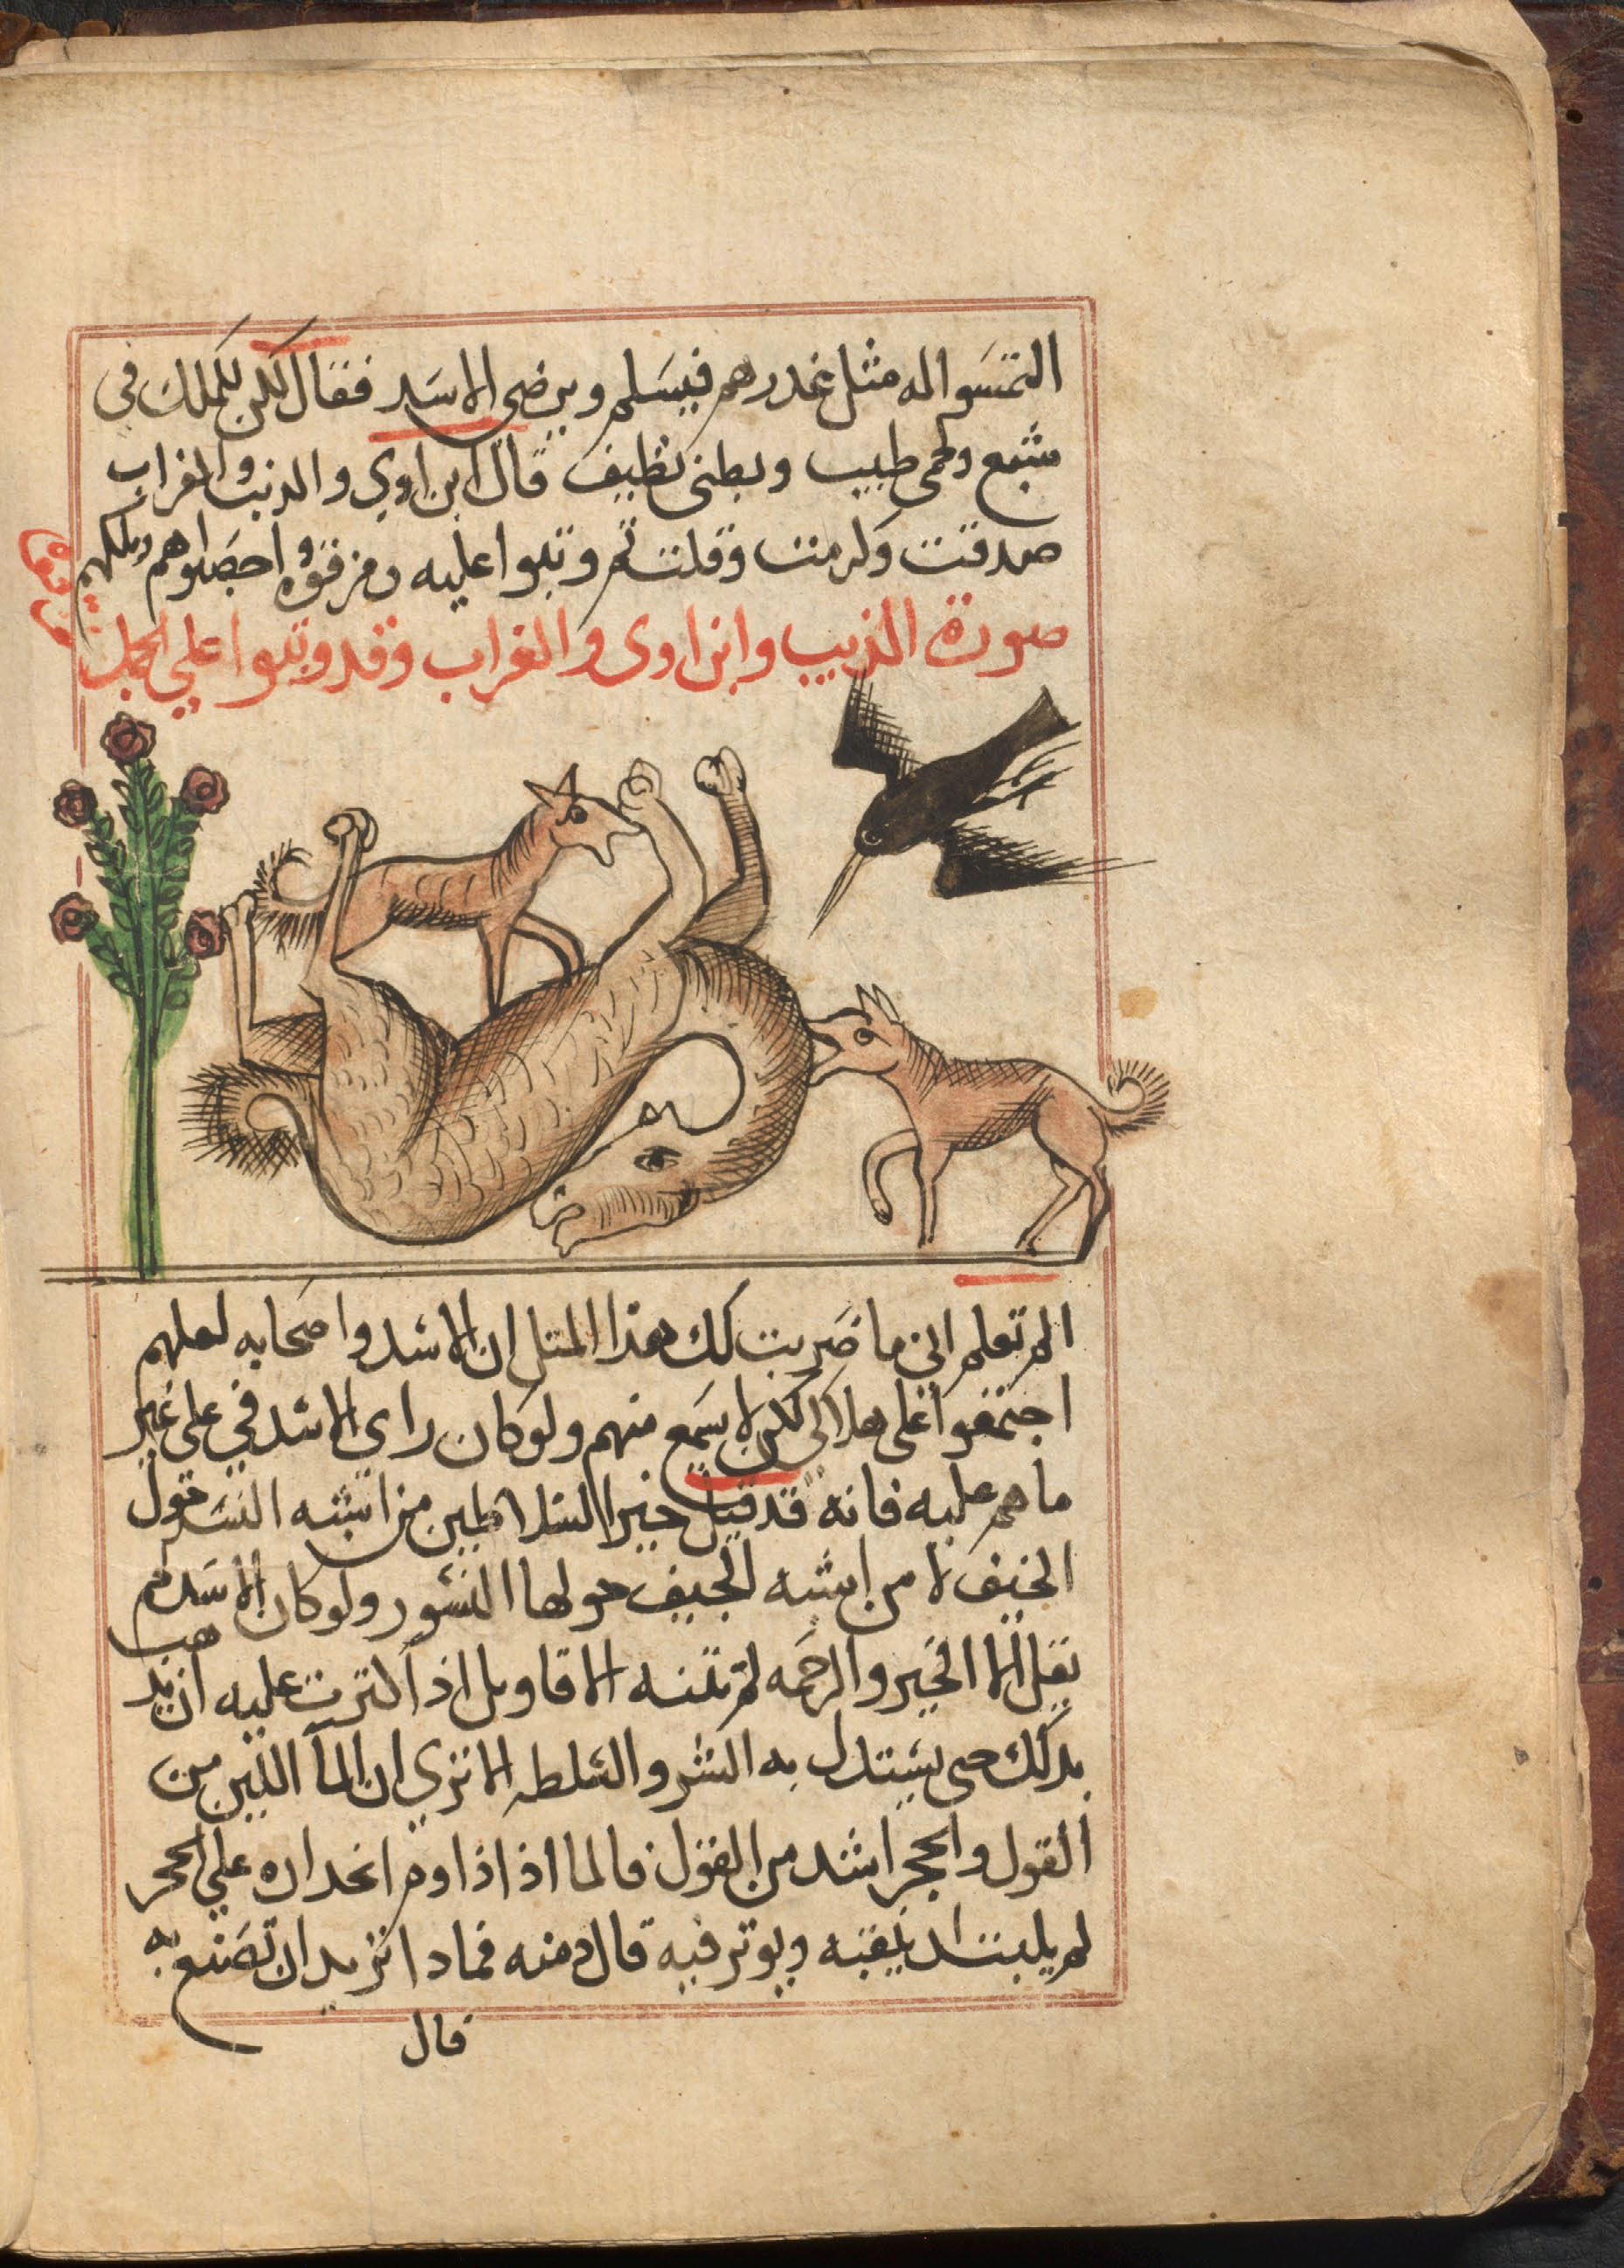 التمسوا له مثل عذرهم فيسلم ويرضى الاسد فقال لكن للملك فى
شبع ولحمى طيب وبطنى نظيف قال ابن اوي والديب والغراب
صدقت وكرمت وقلت ثم وثبوا عليه ومزقوه
صورة الذيب وابن اوى والغراب وقد وثبوا علي الجمل
الم تعلم انى ما ضربت لك هذا المثل ان الاسد واصحابه لعلهم
اجتمعوا على هلاكى لكن لا يسمع منهم ولو كان راي الاسد في على غير
ما هم عليه فانه قد قيل خير السلاطين من اشبه النسر حوله
الجيف لا من اشبه الجيف حولها النسور ولو كان الاسد لم
يقل الا الخير والرحمه لم تثنه الاقاويل اذا اكثرت عليه ان يذهب
بذلك حتى يستدل به الشر والسلطه الا تري ان المآ الين من
القول والحجر اشد من القول فالما اذا اذا اوم انحداره علي الحجر
لم يلبث ان يثقبه ويوثر فيه قال دمنه فماذا تريد ان تصنع به
قال